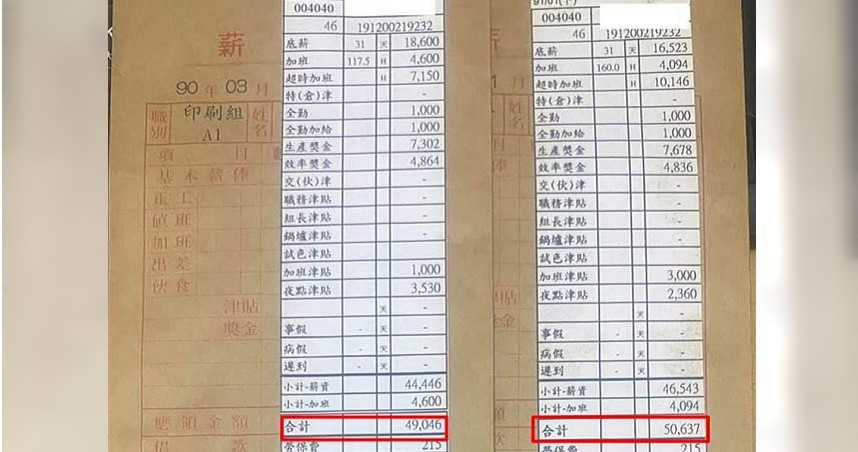 004040
46 191200219232
底薪 31 天 18,600
加班 117.5 H 4,600
超時加班 H 7,150
特(倉)津 -
全勤 1,000
全勤加給 1,000
生產獎金 7,302
效率獎金 4,864
交(伙)津 -
職務津貼 -
組長津貼 -
鍋爐津貼 -
試色津貼
加班津貼 1,000
夜點津貼 3,530
天 -
事假 - 天 -
病假 - 天 -
遲到 - 天 -
小計-薪資 44,446
小計-加班 4,600
合計 49,046
勞保費 215
薪
90 年 03 月
職別 印刷組 A1 姓名
項 目
基本薪俸
正工
值班
加班
出差
伙食
津貼
獎金
應領金額
借 款
91/01(下)
004040
46 191200219232
底薪 31 天 16,523
加班 160.0 H 4,094
超時加班 H 10,146
特(倉)津 -
全勤 1,000
全勤加給 1,000
生產獎金 7,678
效率獎金 4,836
交(伙)津 -
職務津貼 -
組長津貼 -
鍋爐津貼 -
試色津貼
加班津貼 3,000
夜點津貼 2,360
天 -
事假 - 天 -
病假 - 天 -
遲到 - 天 -
小計-薪資 46,543
小計-加班 4,094
合計 50,637
勞保費 215